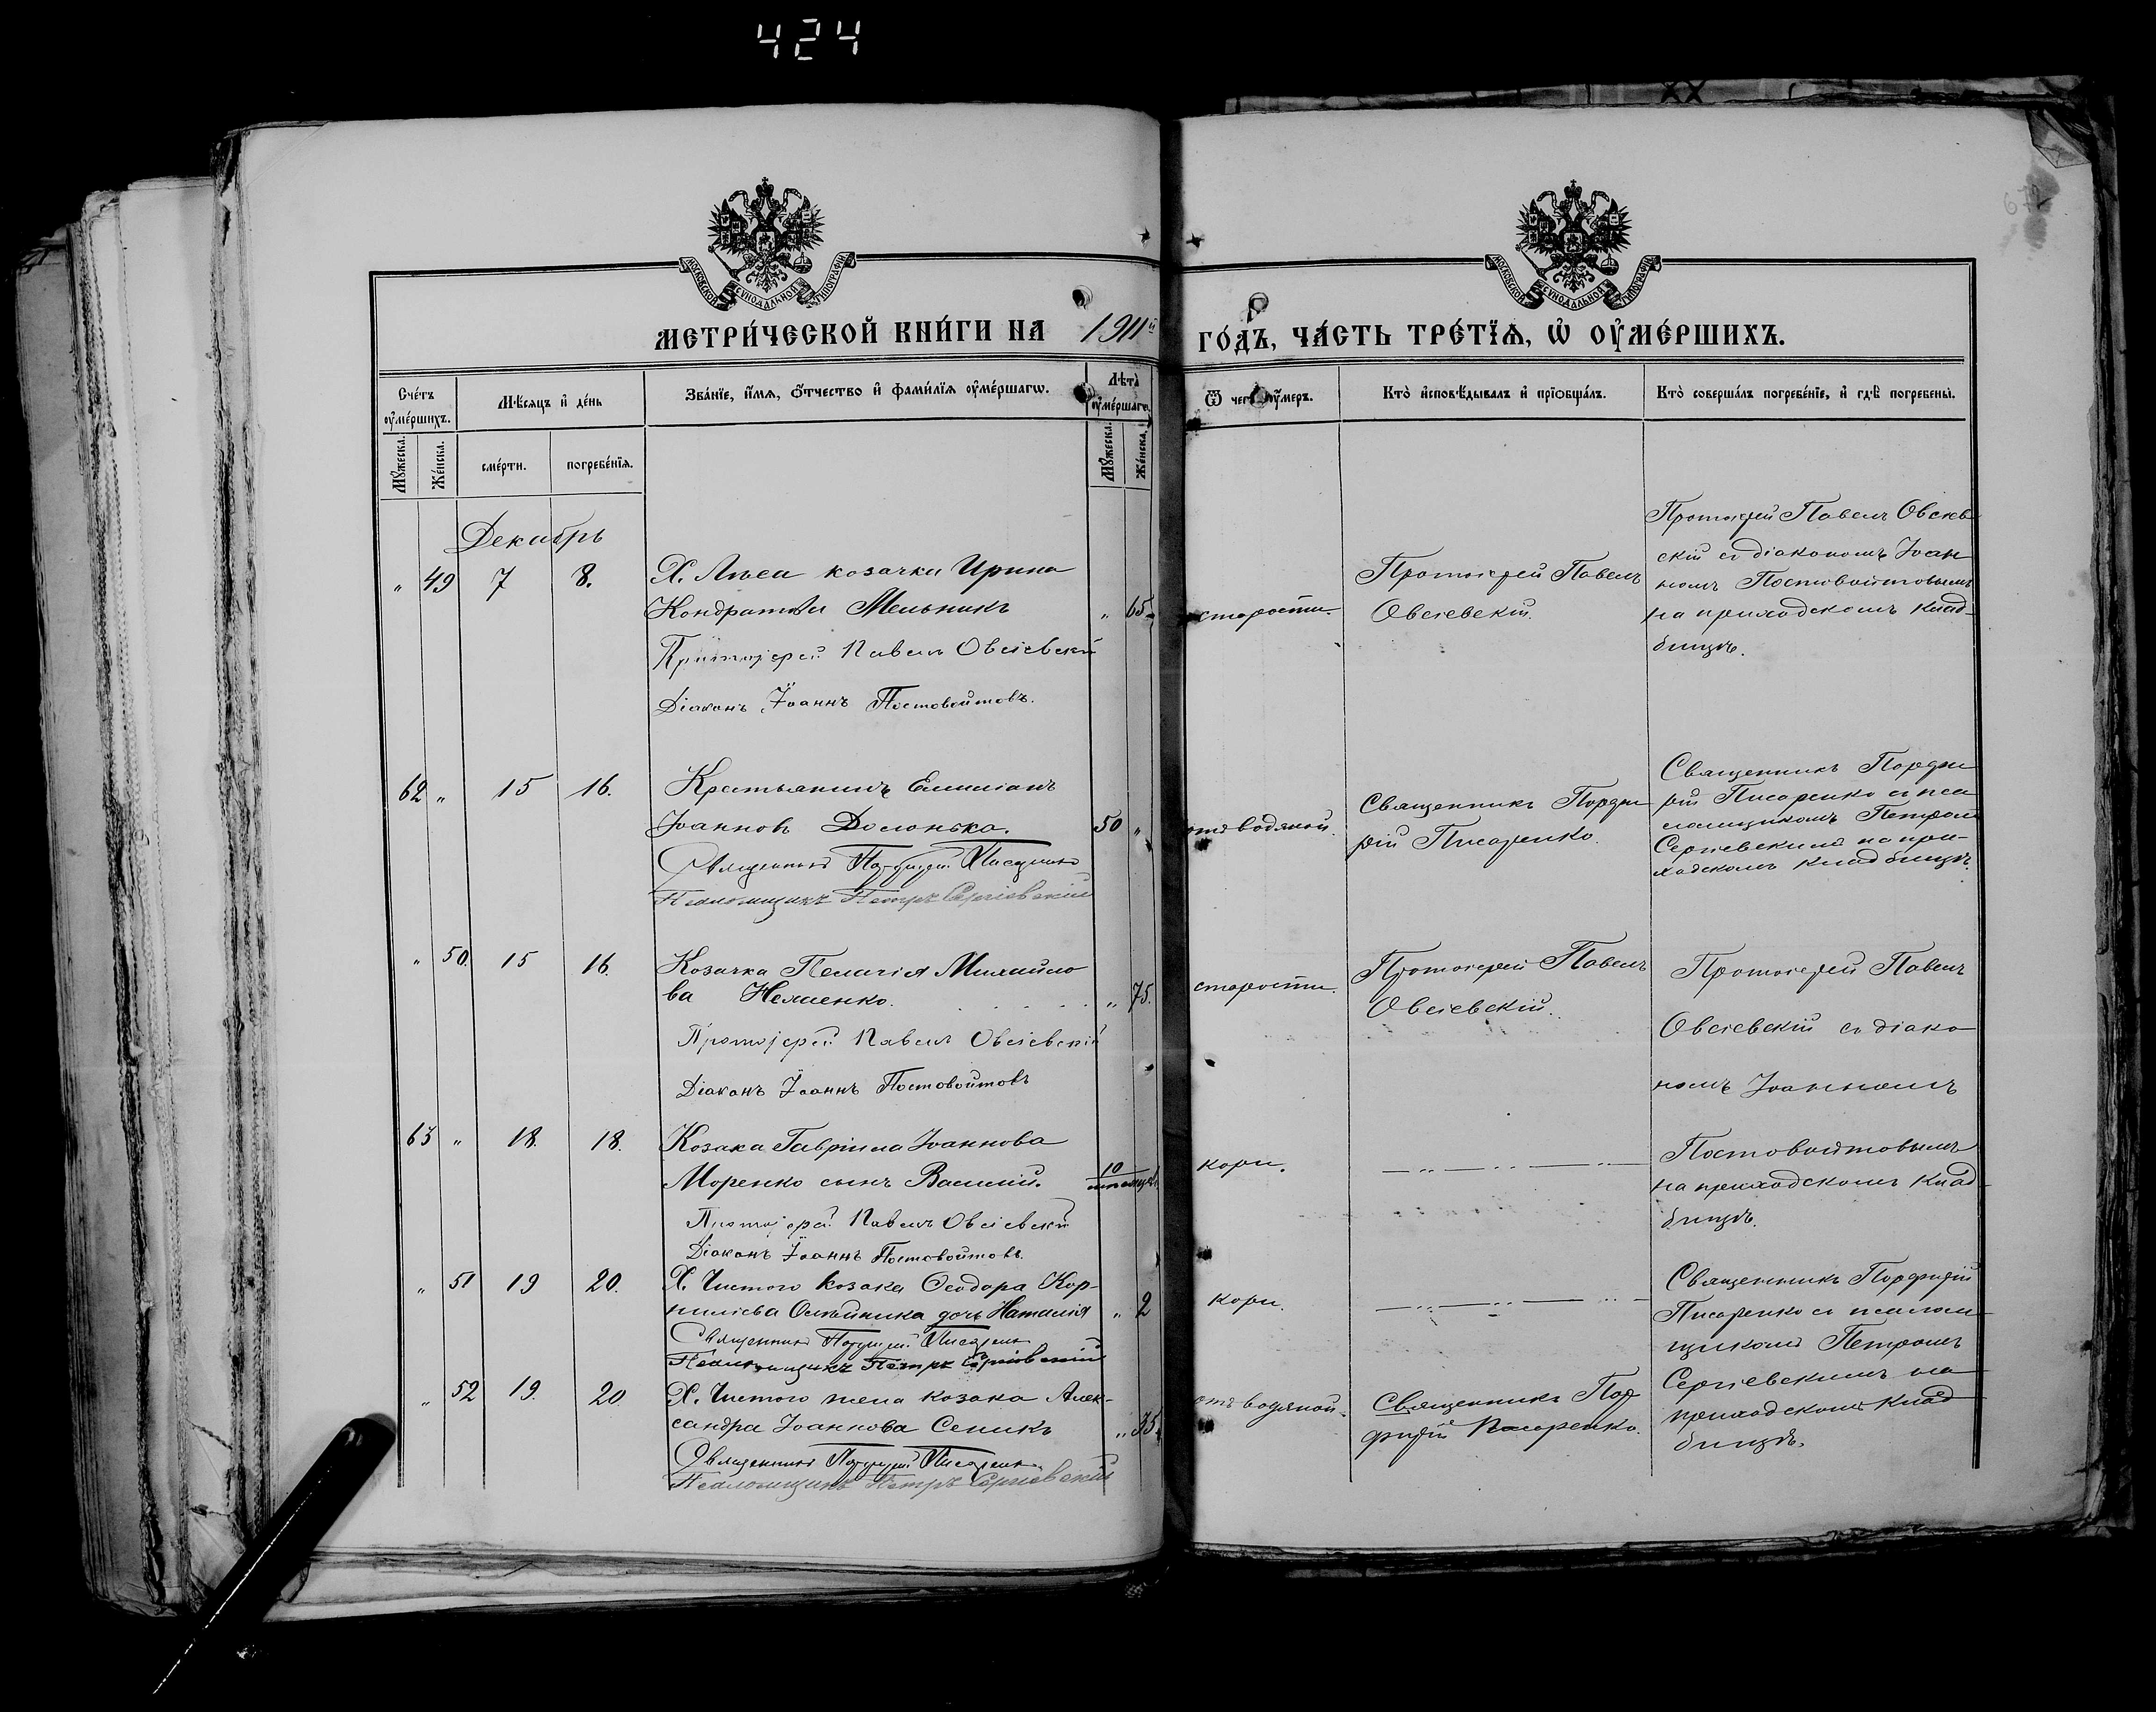 424
672
МОСКОВСКОЙ СѴНОДАЛЬНОЙ ТИПОГРАФІИ
МОСКОВСКОЙ СѴНОДАЛЬНОЙ ТИПОГРАФІИ
МЕТРИ́ЧЕСКОЙ КНИ́ГИ НА 1911й ГО́ДЪ, ЧА́СТЬ ТРЕ́ТЇѦ, Ѡ҆ ОУ҆МЕ́РШИХЪ.
Сче́тъ оу҆ме́ршихъ.
Мѣ́сяцъ и҆ де́нь
Зва́нїе, и҆́мя, ѻ҆́тчество и҆ фами́лїя оу҆ме́ршагѡ.
Лѣта̀ оу҆ме́ршагѡ
Ѿ чегѡ̀ оу҆́меръ.
Кто̀ и҆сповѣ́дывалъ и҆ прїѡбща́лъ.
Кто̀ соверша́лъ погребе́нїе, и҆ гдѣ̀ погребены̀.
Мꙋ́жеска. Же́нска. сме́рти. погребе́нїя. Мꙋ́жеска. Же́нска.
Декабрь
" 49 7 8. Х. козачка Ирина
Кондратьева Мельникъ " 65.
Протоіерей Павелъ Овсіевскій
Діаконъ Іоаннъ Постовойтовъ.
старости.
Протоіерей Павелъ
Овсіевскій.
Протоіерей Павелъ Овсіев
скій съ діакономъ Іоан
номъ Постовойтовымъ
на приходскомъ клад-
бищѣ.
62 " 15 16. Крестьянинъ Емиліанъ
Іоанновъ Долонька. 50 "
Священникъ Порфирій Писаренко
Псаломщикъ Петръ Сергіевскій
отъ водяной.
Священникъ Порфи
рій Писаренко.
Священникъ Порфи
рій Писаренко съ пса
ломщикомъ Петромъ
Сергіевскимъ на при-
ходскомъ кладбищѣ.
" 50. 15 16. Козачка Пелагія Михайло
ва " 75.
Протоіерей Павелъ Овсіевскій
Діаконъ Іоаннъ Постовойтовъ
старости.
Протоіерей Павелъ
Овсіевскій.
Протоіерей Павелъ
Овсіевскій съ діако
номъ Іоанномъ
Постовойтовымъ
на приходскомъ клад
бищѣ.
63 " 18. 18. Козака Гавріила Іоаннова
Моренко сынъ Василій. 10
Протоіерей Павелъ Овсіевскій
Діаконъ Іоаннъ Постовойтовъ.
кори.
" 51 19 20. Х. Чистого козака Ѳеодора Кор-
ниліева Олейника дочь Наталія " 2
Священникъ Порфирій Писаренко
Псаломщикъ Петръ Сергіевскій
кори.
Священникъ Порфирій
Писаренко съ псалом
щикомъ Петромъ
Сергіевскимъ на
приходскомъ клад
бищѣ.
" 52 19. 20 Х. Чистого жена козака Алек-
сандра Іоаннова Сеникъ " 35
Священникъ Порфирій Писаренко
Псаломщикъ Петръ Сергіевскій
отъ водяной.
Священникъ Пор
фирій Писаренко.